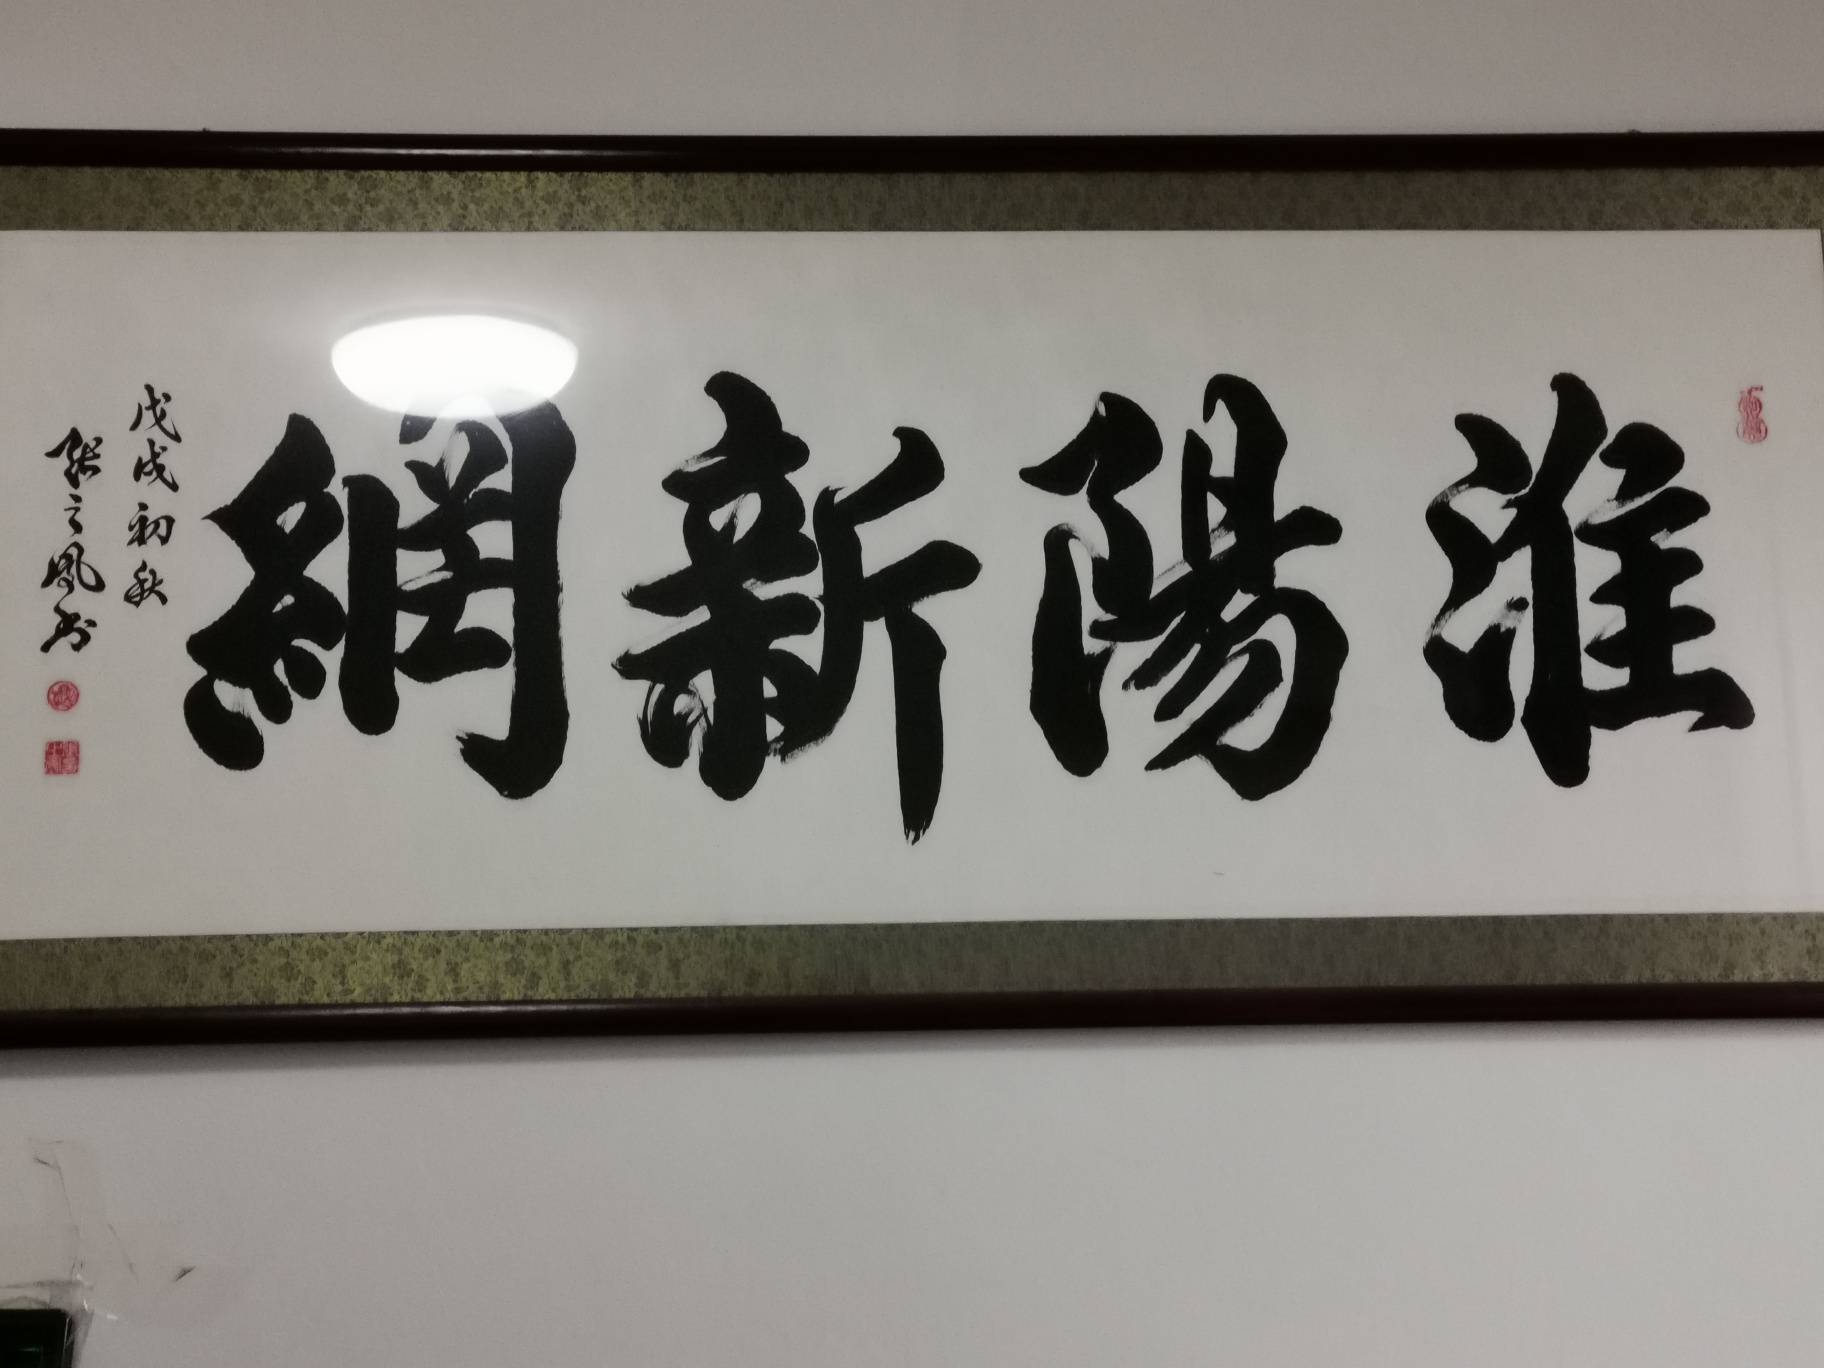 淮陽新網
戊戌初秋
張之風書